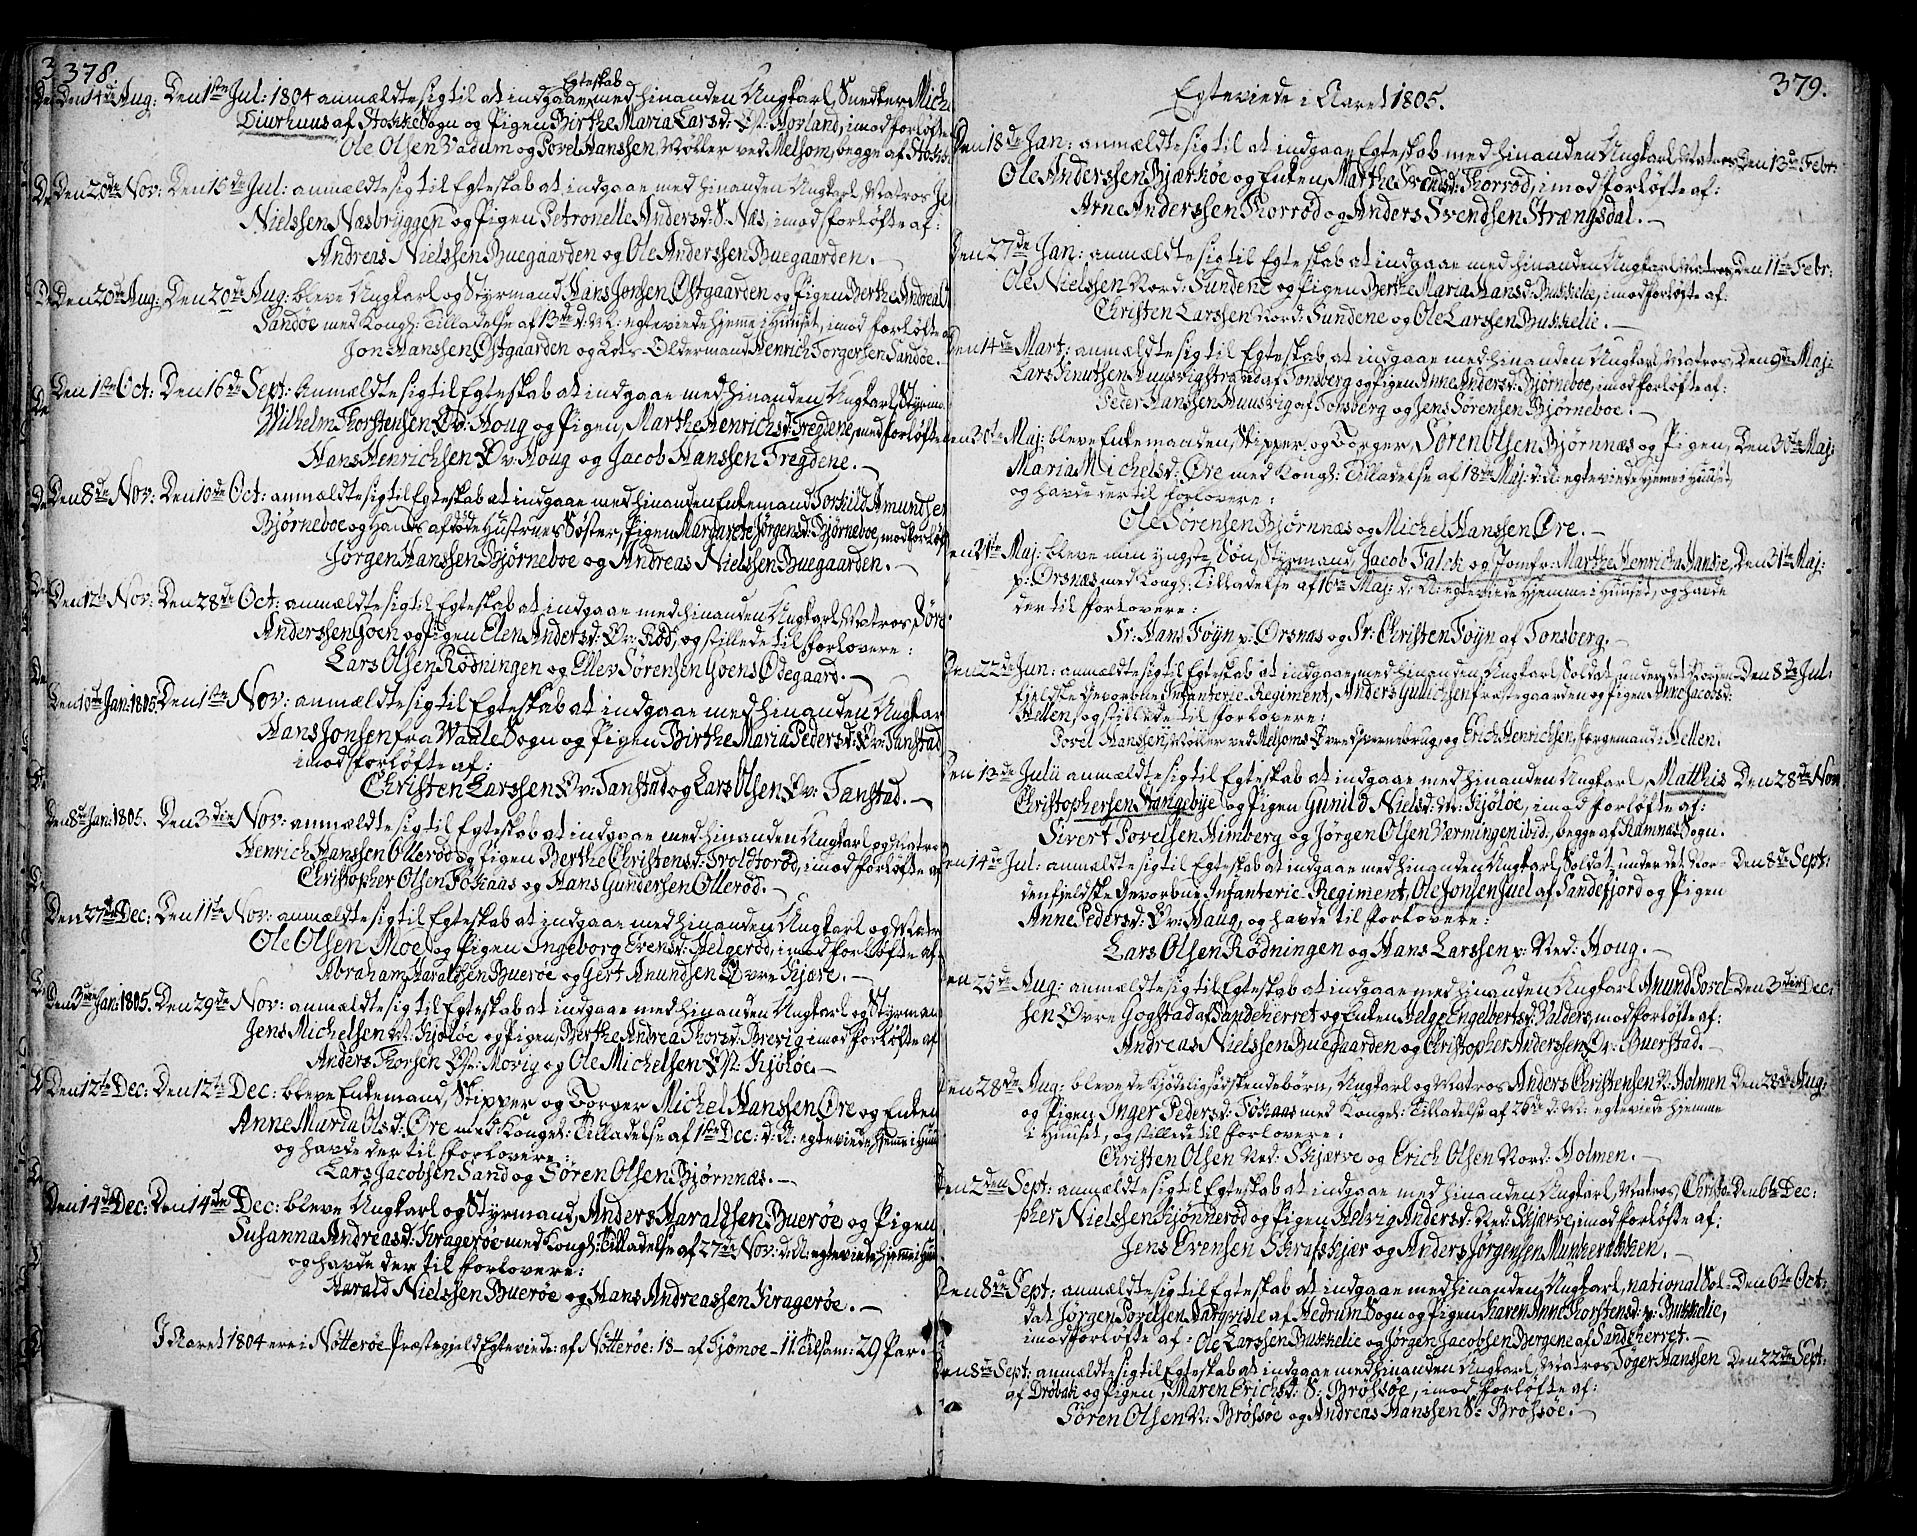 378.
Den 14de Aug: Den 1ste Jul: 1804 anmældte sig til at indgaae Egteskab med hinanden Ungkarl, Snedker Mich
Diurhuus af Stokke Sogn og Pigen Birthe Maria Larsd: Øst: Hovland, imod forløfte
Ole Olsen Vadum og Povel Hanssen Møller ved Melsom, begge af Stokke
Den 20de Nov: Den 15de Jul: anmældte sig til Egteskab at indgaae med hinanden Ungkarl, Matros Je
Nielssen Næsbryggen og Pigen Petronelle Andersd: S: Næs, imod forløfte af:
Andreas Nielssen Buegaarden og Ole Anderssen Buegaarden. —
Den 20de Aug: Den 20de Aug: bleve Ungkarl og Styrmand Hans Jonsen Østgaarden og Pigen Berthe Andrea O
Sandøe med Kongl: Tilladelse af 13de d: M: egteviede hjeme i Huuset, imod forløfte af
Jon Hanssen Østgaarden og Lots-Oldermand Henrich Torgersen Sandøe.
Den 1ste Oct: Den 16de Sept: Anmældte sig til Egteskab at indgaae med hinanden Ungkarl, Styrm
Wilhelm Thorstensen Øv: Houg og Pigen, Marthe Henrichsd: Tregdene, med forløfte
Hans Henrichsen Øv: Houg og Jacob Hanssen Tregdene. —
Den 8de Nov: Den 10de Oct: anmældte sig til Egteskab at indgaae med hinanden Enkemand Torkild Amundsen
Bjørneboe og Hands afdøde Hustrues Søster, Pigen Margarete Jørgensd: Bjørneboe, mod forløft
Jørgen Hanssen Bjørneboe og Andreas Nielssen Buegaarden. —
Den 12te Nov: Den 28de Oct: anmældte sig til Egteskab at indgaae med hinanden Ungkarl, Matros Søre
Anderssen Goen og Pigen Elen Andersd: Øv: Rød, og stillede til forlovere:
Lars Olsen Rødningen og Ellev Sørensen Goens Ødegaard. —
Den 10de Jan: 1805. Den 1ste Nov: anmældte sig til Egteskab at indgaae med hinanden Ungkar
Hans Jonsen fra Waale Sogn og Pigen Birthe Maria Pedersd: Øv: Tanstad
imod forløfte af:
Christen Larssen Øv: Tanstad og Lars Olsen Øv: Tanstad. —
Den 8de Jan: 1805. Den 3die Nov: anmældte sig til Egteskab at indgaae med hinanden Ungkarl og Matro
Henrich Hanssen Ollerød og Pigen Berthe Christensd: Troldtorød, imod forløfte af
Christopher Olsen Føhaas og Hans Gundersen Ollerød. —
Den 27de Dec: Den 11te Nov: anmældte sig til Egteskab at indgaae med hinanden Ungkarl og Matr
Ole Olsen Moe og Pigen Ingeborg Evensd: Helgerød, imod forløfte af
Abraham Haraldsen Buerøe og Gert Anundsen Øvre Kjære. —
Den 3die Jan: 1805. Den 29de Nov: anmældte sig til Egteskab at indgaae med hinanden Ungkarl og Styrman
Jens Michelsen N: Kjøløe og Pigen, Berthe Andrea Thorsd: Brevig imod forløfte af
Anders Thorsen Øst: Movig og Ole Michelsen Øst: Kjøløe. —
Den 12te Dec: Den 12te Dec: bleve Enkemand, Skipper og Borger Michel Hanssen Øre og Enken
Anne Maria Olsd: Øre med Kongel: Tilladelse af 1ste Dec: d: A: egteviede hjeme i Huu
og havde der til forlovere:
Lars Jacobsen Sand og Søren Olsen Bjørnnæs. —
Den 14de Dec: Den 14de Dec: bleve Ungkarl og Styrmand, Anders Haraldsen Buerøe og Pigen
Susanna Andreasd: Kragerøe med Kongl: Tilladelse af 27de Nov: d: A: egteviede hjeme i Huu
og havde der til forlovere:
Harald Nielssen Buerøe og Hans Andreassen Kragerøe. —
I Aaret 1804 ere i Nøtterøe Præstegjeld Egteviede: af Nøtterøe: 18 — af Tjømoe — 11. tilsam: 29 Par. —
379.
Egteviede i Aaret 1805.
Den 18de Jan: anmældte sig til at indgaae Egteskab med hinanden Ungkarl Matros Den 13de Febr:
Ole Anderssen Bjærkøe og Enken, Marthe Svendsd: Thorrød, imod forløfte af:
Arne Anderssen Thorrød og Anders Svendsen Strængsdal. —
Den 27de Jan: anmældte sig til Egteskab at indgaae med hinanden Ungkarl Matros Den 11te Febr:
Ole Nielssen Nord: Sundene og Pigen Berthe Maria Hansd: Bukkelie, imod forløfte af:
Christen Larssen Nord: Sundene og Ole Larssen Bukkelie. —
Den 14de Mart: anmældte sig til Egteskab at indgaae med hinanden Ungkarl, Matros Den 9de Maj:
Lars Knutsen Huusvigstrand af Tonsberg og Pigen Anne Andersd: Bjørneboe, imod forløfte af:
Peder Hanssen Huusvig af Tonsberg og Jens Sørensen Bjørneboe: —
Den 30te Maj: bleve Enkemanden, Skipper og Borger, Søren Olsen Bjørnnæs og Pigen, Den 30te Maj:
Maria Michelsd: Øre med Kongl: Tilladelse af 18de Maj: d: A: egteviede hjeme i Huuset,
og havde der til forlovere:
Ole Sørensen Bjørnnæs og Michel Hanssen Øre. —
Den 31te Maj: bleve min yngste Søn, Styrmand, Jacob Falck og Jomfr: Marthe Henricha Hansse, Den 31te Maj:
p: Ørsnæs med Kongl: Tilladelse af 16de Maj: d: A: egteviede hjemme i Huuset, og havde
der til forlovere:
Sr: Hans Føyn p: Ørsnæs og Sr: Christen Føyn af Tonsberg. —
Den 22de Jun: anmældte sig til Egteskab at indgaae med hinanden Ungkarl Soldat, under det Norden- Den 8de Jul:
fjeldske Gevorbne Infanterie Regiment, Anders Gullichsen Præstegaarden og Pigen Anne Jacobsd:
Hellen, og stillede til forlovere:
Povel Hanssen, Møller ved Melsoms Øvredsvernebrug, og Erich Henrichsen, forgemand: Hellen.
Den 13de Julii anmældte sig til Egteskab at indgaae med hinanden Ungkarl, Matthis Den 28de Nov:
Christophersen Stangebye og Pigen Gunild Nielsd: N: Kjøløe, imod forløfte af:
Sivert Povelsen Himberg og Jørgen Olsen Værmingen ibid, begge af Ramnæs Sogn.
Den 14de Jul: anmældte sig til Egteskab at indgaae med hinanden Ungkarl, Soldat, under det Nor- Den 8de Sept:
denfjeldske Gevorbne Infanterie-Regiment, Ole Jonsen Juel af Sandefjord og Pigen
Anne Pedersd: Øv: Haug, og havde til forlovere:
Lars Olsen Rødningen og Hans Larssen p: Ned: Houg. —
Den 25de Aug: anmældte sig til Egteskab at indgaae med hinanden Ungkarl Anund Povel- Den 3die Dec:
sen Øvre Gogstad af Sandeherret og Enken Helge Engelbertsd: Valders, mod forløfte af:
Andreas Nielssen Buegaarden og Christopher Anderssen Øv: Buerstad. —
Den 28de Aug: bleve de Kjødelig Sødskendebørn, Ungkarl og Matros Anders Christensen N: Holmen Den 28de Aug:
og Pigen Inger Pedersd: Føhaas med Kongel: Tilladelse af 23de d: M: egteviede hjemme
i Huuset, og stillede til forlovere:
Christen Olsen Ned: Skjærve og Erich Olsen Nord: Holmen. —
Den 2den Sept: anmældte sig til Egteskab at indgaae med hinanden Ungkarl, Matros, Christo- Den 6te Dec:
pher Nielssen Kjønnerød og Pigen Helvig Andersd: Ned: Skjærve, imod forløfte af:
Jens Evensen Skrafskjær og Anders Jørgensen Munkerækken. —
Den 8de Sept: anmældte sig til Egteskab at indgaae med hinanden Ungkarl, national Sol- Den 6te Oct:
dat Jørgen Povelsen Aargvisle af Hedrum Sogn og Pigen Karen Anne Thorstensd: p: Bukkelie,
imod forløfte af: Ole Larssen Bukkelie og Jørgen Jacobsen Bergene af Sandeherret. —
Den 8de Sept: anmældte sig til Egteskab at indgaae med hinanden Ungkarl, Matros Tøger Hanssen Den 22de Sept:
af Drøbak og Pigen, Maren Erichsd: S: Brøtsøe, imod forløfte af:
Søren Olsen N: Brøtsøe og Andreas Hanssen S: Brøtsøe. —